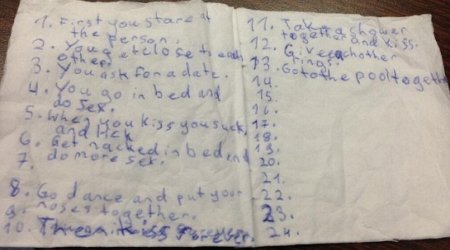 1. First you stare at
the person.
2. You get close to each
other.
3. You ask for a date.
4. You go in bed and
do sex.
5. When you kiss you suck
and lick
6. Get nacked in bed and
7. do more sex.
8. Go dance and put your
9. noses together.
10. Forever.
11. Take a shower
12. together and kiss.
Give eachother
13. rings.
14. Go to the pool together
15.
16.
17.
18.
19.
20.
21.
22.
23.
24.